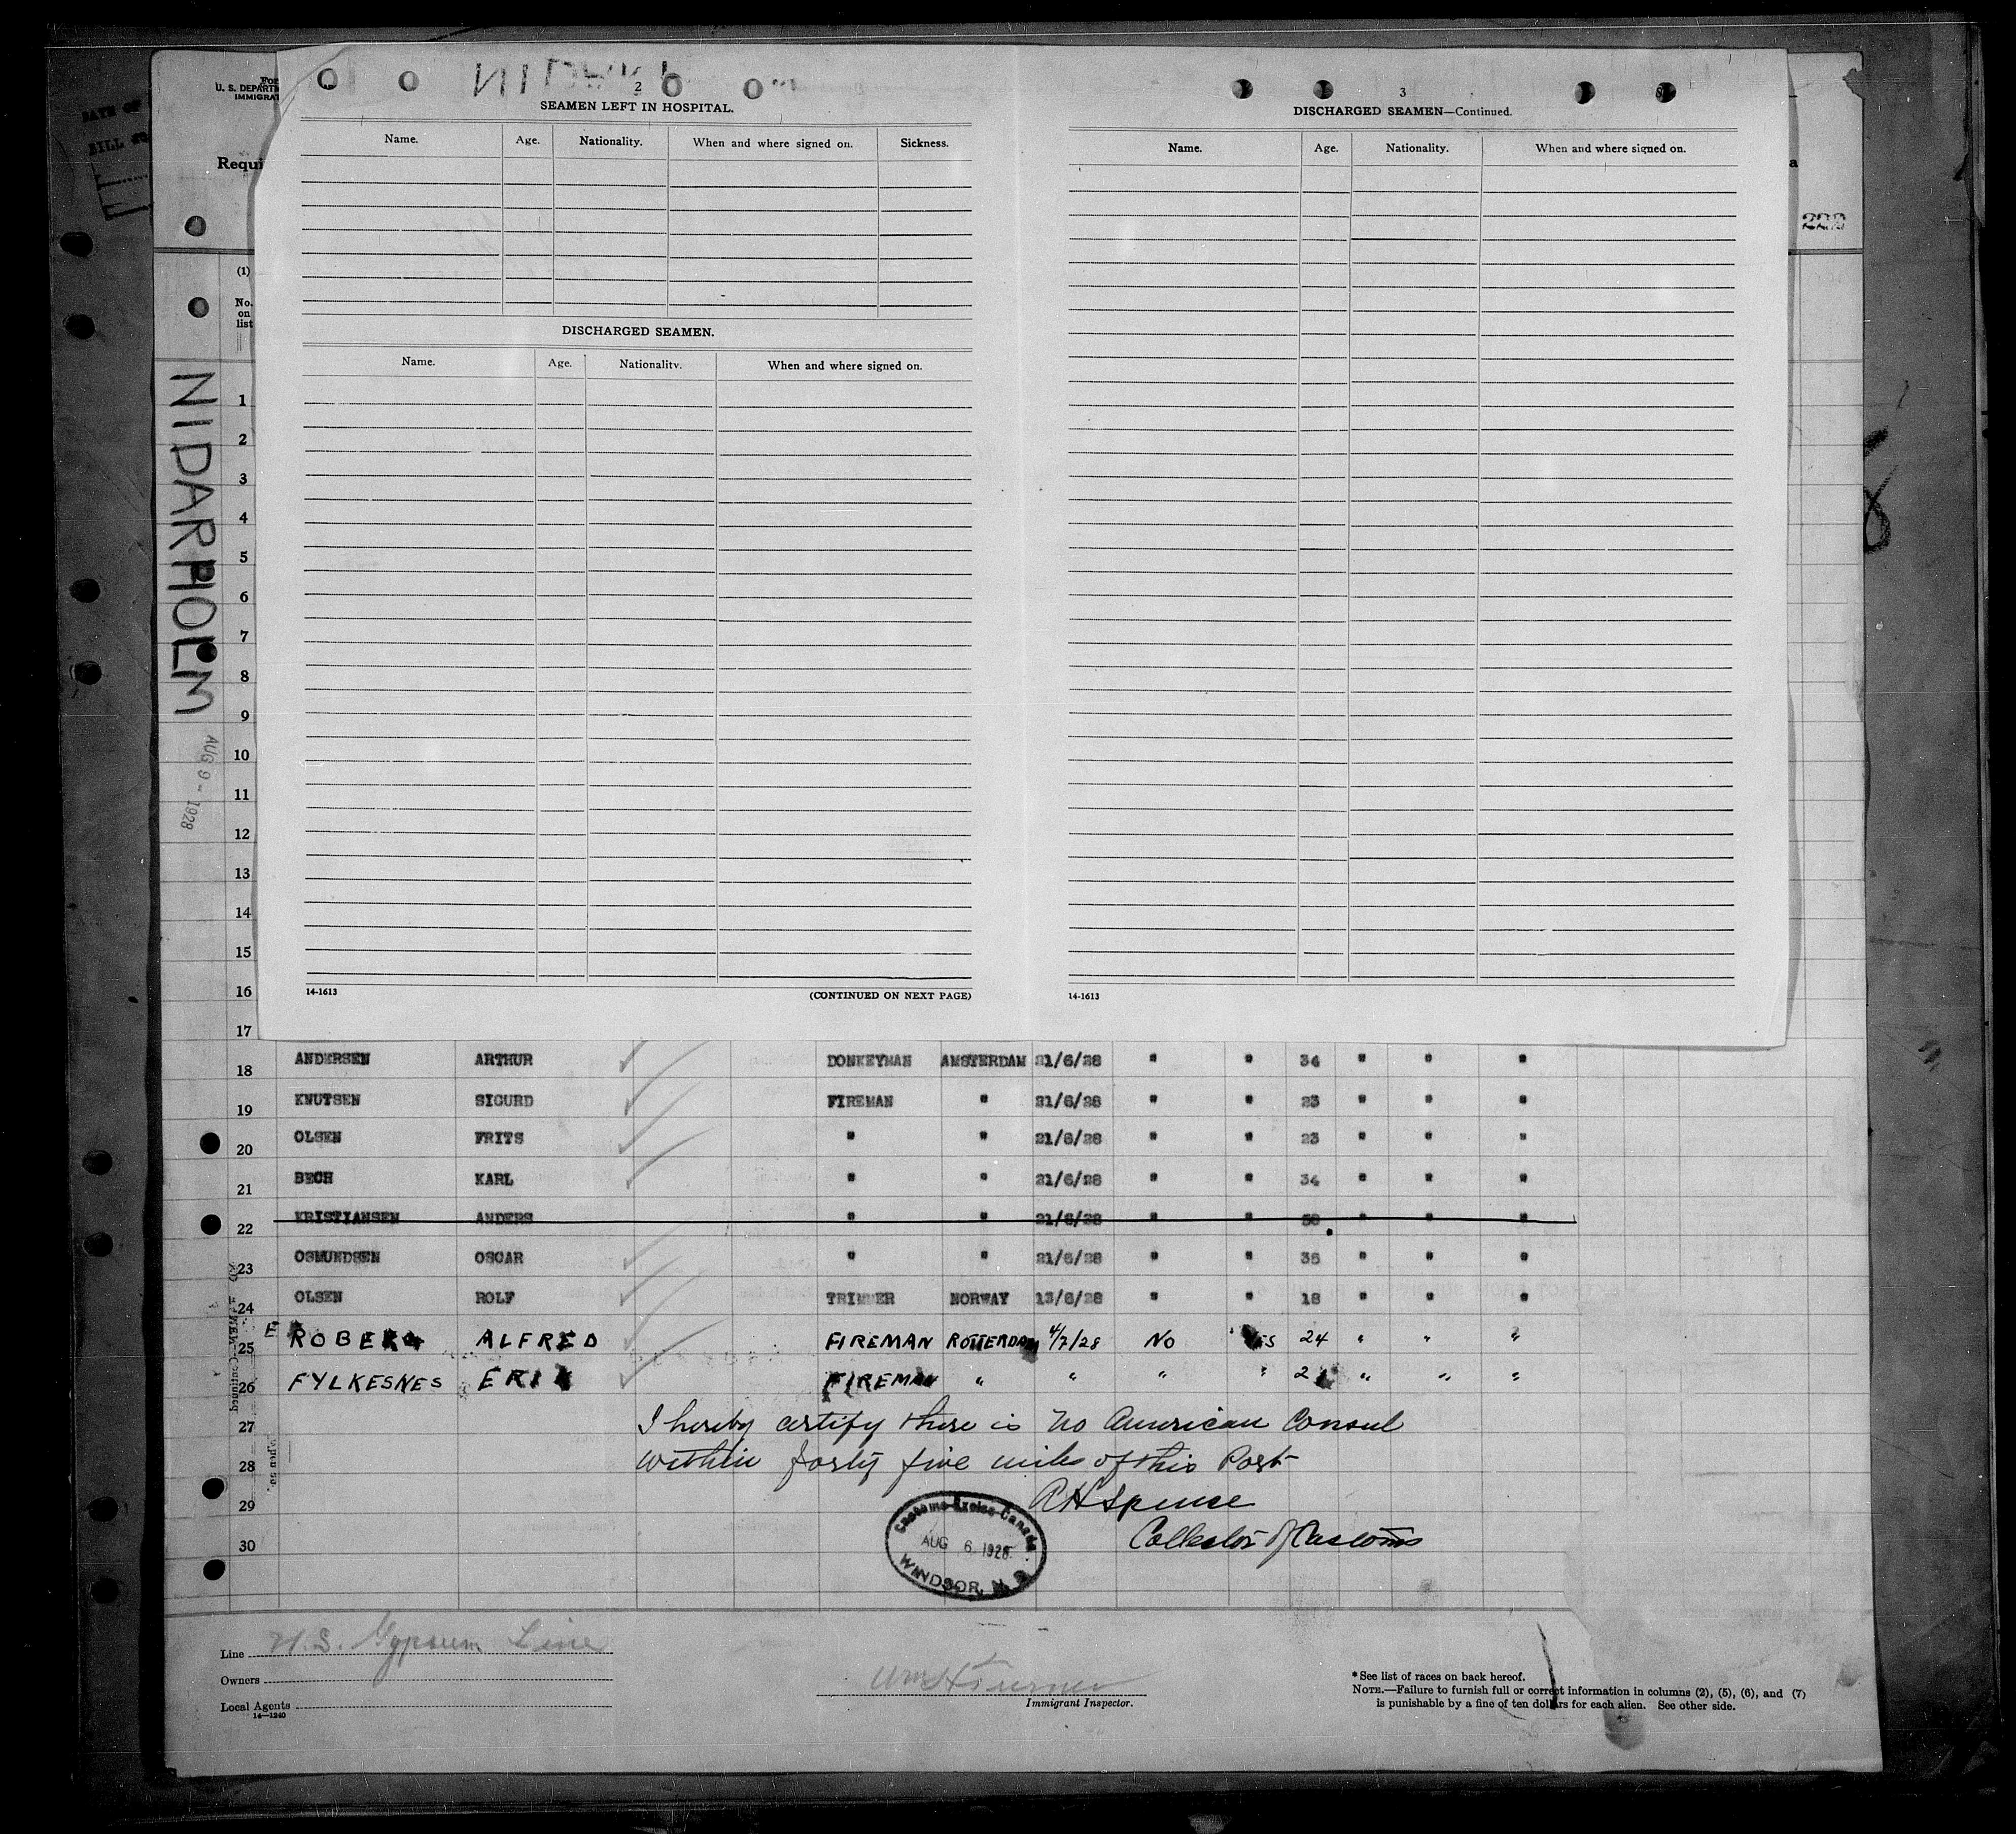 For
U. S. DEPARTM
IMMIGRAT
Requi
a
222
DATE OF
BILL
2
SEAMEN LEFT IN HOSPITAL.
Name. Age. Nationality. When and where signed on. Sickness.
DISCHARGED SEAMEN.
Name. Age. Nationality. When and where signed on.
14-1613 (CONTINUED ON NEXT PAGE)
3
DISCHARGED SEAMEN—Continued.
Name. Age. Nationality. When and where signed on.
14-1613
(1)
No.
on
list
NIDARHOLM
AUG 9 - 1928
1
2
3
4
5
6
7
8
9
10
11
12
13
14
15
16
17
18 ANDERSEN ARTHUR DONKEYMAN AMSTERDAM 21/6/28 " " 34 " " "
19 KNUTSEN SIGURD FIREMAN " 21/6/28 " " 23 " " "
20 OLSEN FRITS " " 21/6/28 " " 23 " " "
21 BECH KARL " " 21/6/28 " " 34 " " "
22 KRISTIANSEN ANDERS " " 21/6/28 " " " " "
23 OSMUNDSEN OSCAR " " 21/6/28 " " 35 " " "
24 OLSEN ROLF TRIMMER NORWAY 13/6/28 " " 18 " " "
25 ALFRED FIREMAN ROTTERDAM 4/7/28 NO YES 24 " " "
26 FYLKESNES ERIK FIREMAN " " " " " " "
27 I hereby certify there is no American Consul
28 within forty five miles of this Port
29 A H Spence
30 Collector of Customs
Customs-Excise-Canada
AUG 6 1928
WINDSOR, N. S.
Line U.S. Gypsum Line
Owners
Local Agents
14-1240
Wm H Turner
Immigrant Inspector.
* See list of races on back hereof.
NOTE.—Failure to furnish full or correct information in columns (2), (5), (6), and (7)
is punishable by a fine of ten dollars for each alien. See other side.